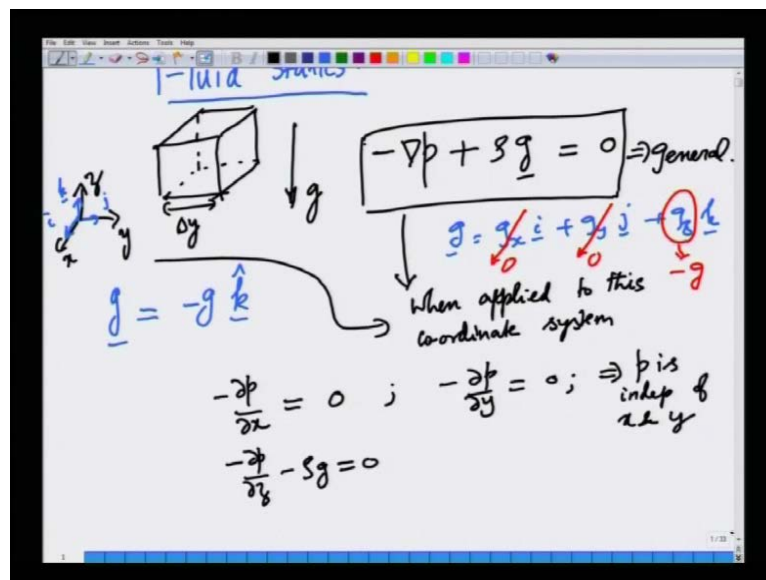 File Edit View Insert Actions Tools Help
Fluid Statics.
-∇p + ρg = 0 ⇒ general.
z
k
i
j
y
x
Δy
g
g = gₓ i + g_y j + g_z k
0
0
-g
g = -g k̂
When applied to this
coordinate system
-∂p/∂x = 0 ; -∂p/∂y = 0; ⇒ p is
indep of
x & y
-∂p/∂z - ρg = 0
1/33
1